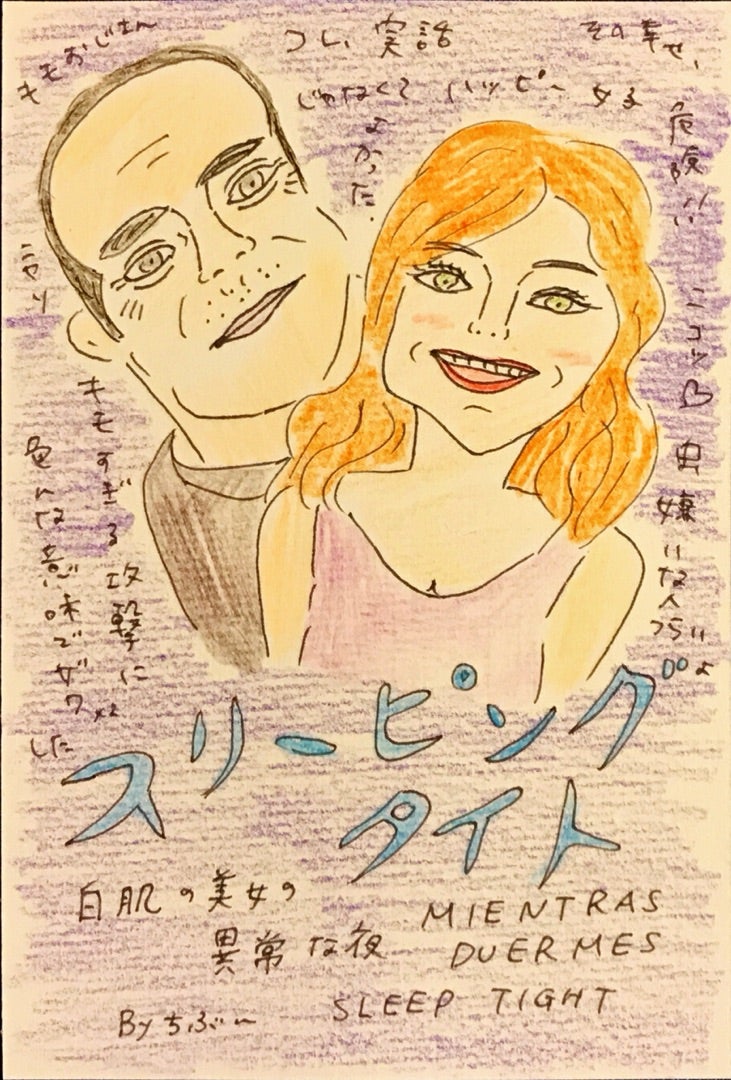 キモおじさん
実話
じゃなくて
よかった
ハッピー
女子
その幸せ、
危険!!
ニヤリ
ニコッ♡
虫嫌いな人
つらいよ
キモすぎる攻撃に
色んな意味でザワザワ
した
スリーピング
タイト
白肌の美女の
異常な夜
MIENTRAS
DUERMES
SLEEP TIGHT
By ちぶー